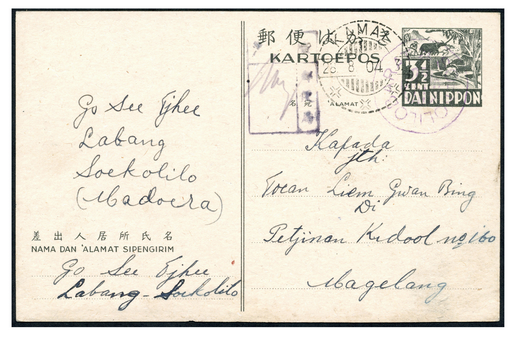 郵便はがき
KARTOEPOS
3½
CENT
DAI NIPPON
28 8 04
名
'ALAMAT
Go See Tjhee
Labang
Soekolilo
(Madoera)
差出人居所氏名
NAMA DAN 'ALAMAT SIPENGIRIM
Go See Tjhee
Labang-Soekolilo
Kapada
jth:
Toean Liem Gwan Bing
Di
Petjinan Kidool no 160
Magelang